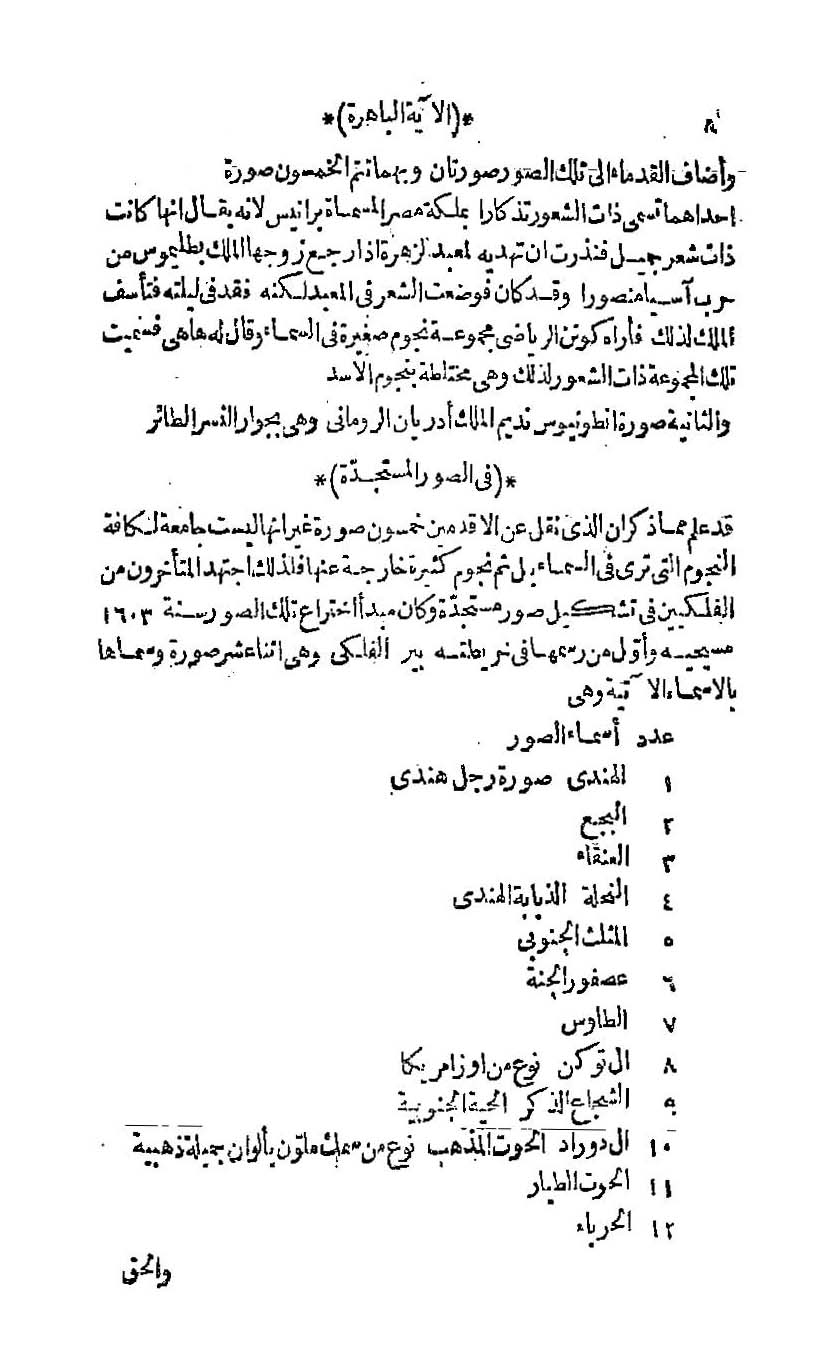 ٨ *(الآية الباهرة)*
وأضاف القدماء الى تلك الصور صورتان وبهما تتم الخمسون صورة
احداهما تسمى ذات الشعور تذكارا بملكة مصر المسماة برانيس لانه يقال انها كانت
ذات شعر جميل فنذرت ان تهديه لمعبد الزهرة اذا رجع زوجها الملك بطليموس من
حرب آسيا منصورا وقد كان فوضعت الشعر في المعبد لكنه فقد في ليلته فتأسف
الملك لذلك فأراه كونن الرياضى مجموعة نجوم صغيرة فى السماء وقال له هاهى فسميت
تلك المجموعة ذات الشعور لذلك وهى مختلطة بنجوم الأسد
والثانية صورة انطونيوس نديم الملك أدريان الرومانى وهى بجوار النسر الطائر
*(فى الصور المستجدّة)*
قد علم مما ذكر ان الذى نقل عن الاقدمين خمسون صورة غير انها ليست جامعة لكافة
النجوم التى ترى فى السماء بل ثم نجوم كثيرة خارجة عنها فلذلك اجتهد المتأخرون من
الفلكيين فى تشكيل صور مستجدّة وكان مبدأ اختراع تلك الصور سنة ١٦٠٣
مسيحيه وأوّل من رسمها فى خريطته بير الفلكى وهى اثنا عشر صورة وسماها
بالاسماء الآتية وهى
عدد أسماء الصور
١ الهندى صورة رجل هندى
٢ البجع
٣ العنقاء
٤ النحلة الذبابة الهندى
٥ المثلث الجنوبى
٦ عصفور الجنة
٧ الطاوس
٨ ال توكن نوع من اوز امريكا
٩ الشجاع الذكر الحية الجنوبية
١٠ ال دوراد الحوت المذهب نوع من سمك ملوّن بألوان جميلة ذهبية
١١ الحوت الطيار
١٢ الحرباء
والحق